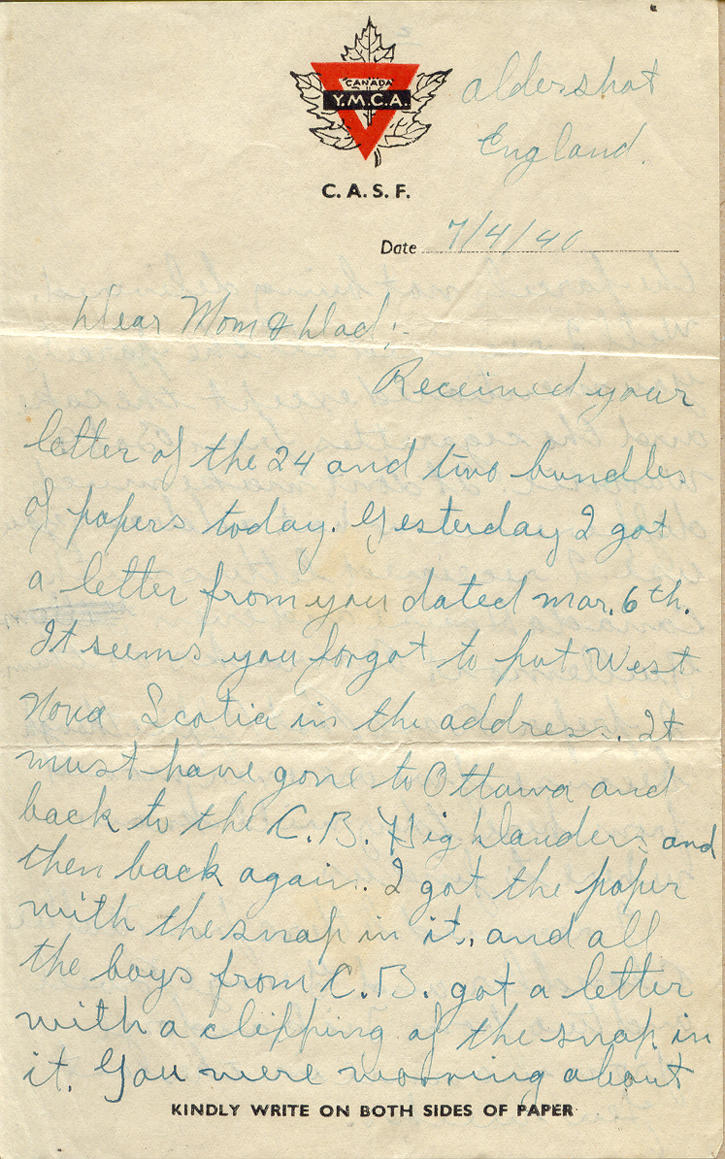 CANADA
Y.M.C.A.
C. A. S. F.
Aldershot
England.
Date 7/4/40
Dear Mom & Dad:-
Received your
letter of the 24 and two bundles
of papers today. Yesterday I got
a letter from you dated Mar. 6th.
It seems you forgot to put West
Nova Scotia in the address. It
must have gone to Ottawa and
back to the C. B. Highlanders and
then back again. I got the paper
with the snap in it, and all
the boys from C. B. got a letter
with a clipping of the snap in
it. You were worring about
KINDLY WRITE ON BOTH SIDES OF PAPER